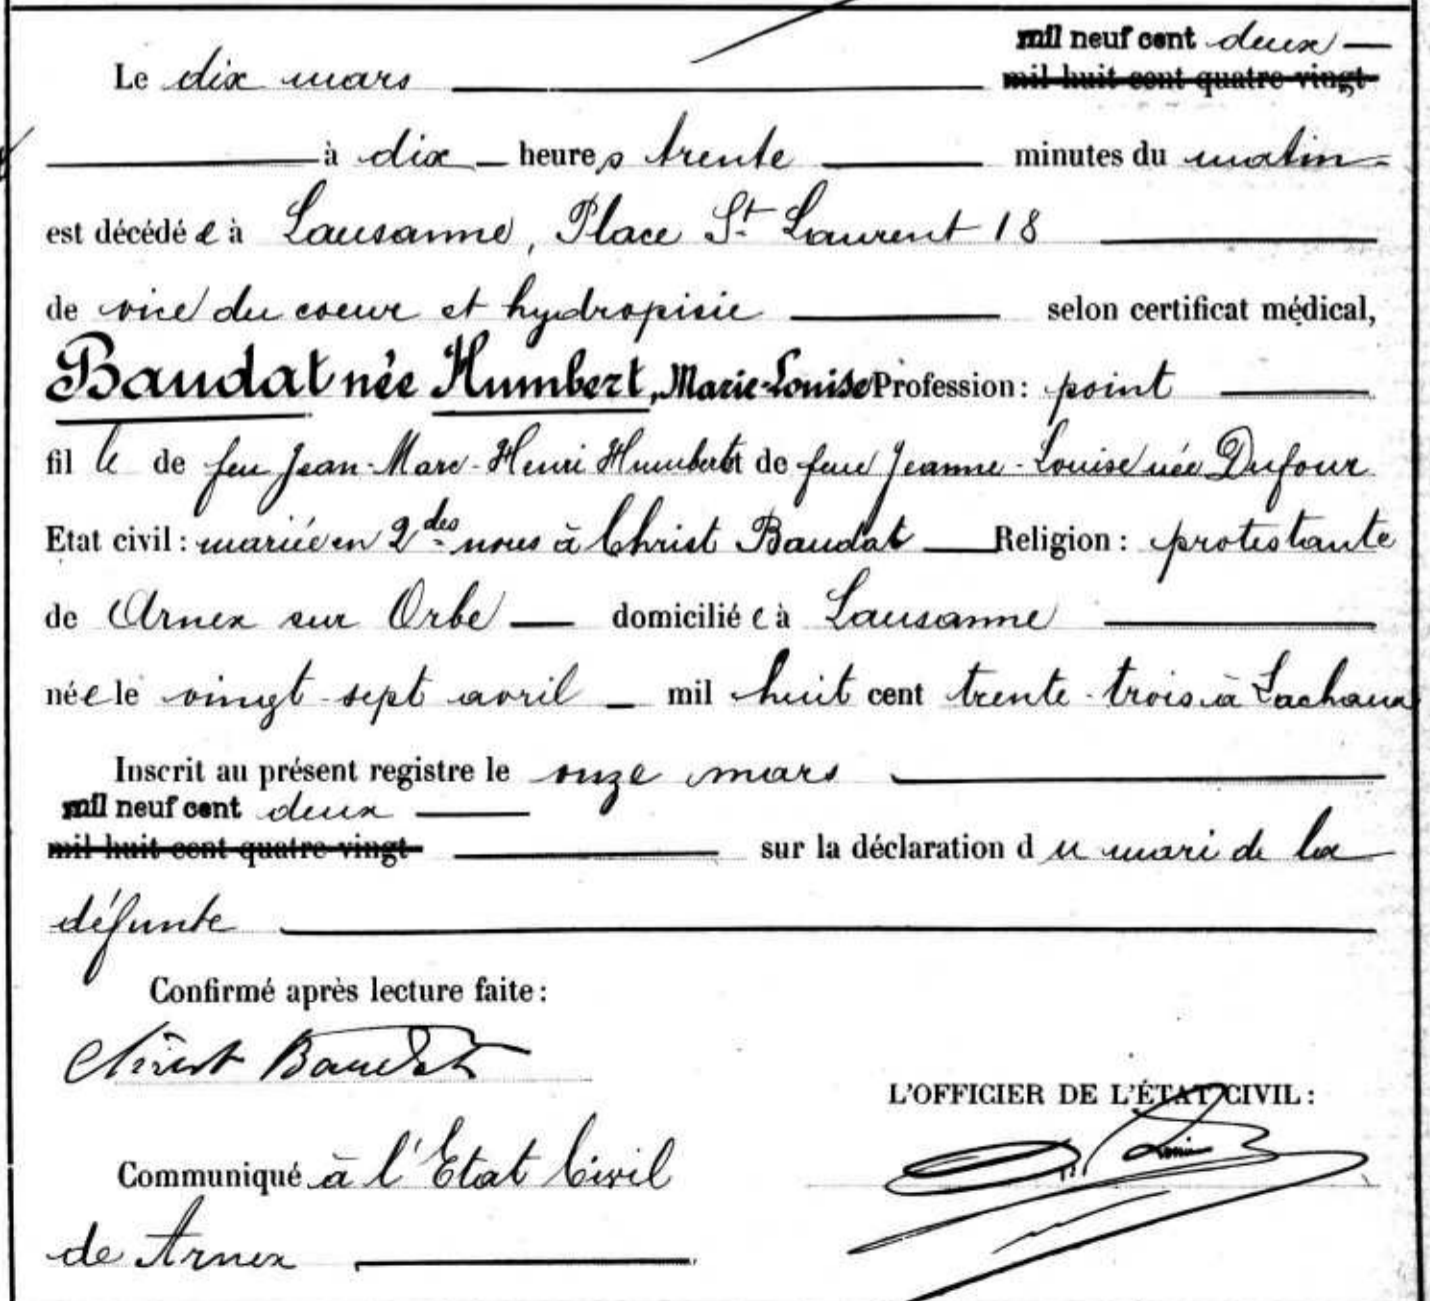 mil neuf cent deux
Le dix mars mil huit cent quatre-vingt
à dix heures trente minutes du matin
est décédée à Lausanne, Place St Laurent 18
de vice du coeur et hydropisie selon certificat médical,
Baudat née Humbert, Marie-Louise Profession: point
fille de feu Jean-Marc-Henri Humbert et de feue Jeanne-Louise née Dufour
Etat civil: mariée en 2des noces à Christ Baudat Religion: protestante
de Arnex sur Orbe domiciliée à Lausanne
née le vingt-sept avril mil huit cent trente-trois à Lachaux
Inscrit au présent registre le onze mars
mil neuf cent deux
mil huit cent quatre-vingt sur la déclaration du mari de la
défunte
Confirmé après lecture faite:
Christ Baudat
L'OFFICIER DE L'ÉTAT CIVIL:
Communiqué à l'Etat Civil
de Arnex